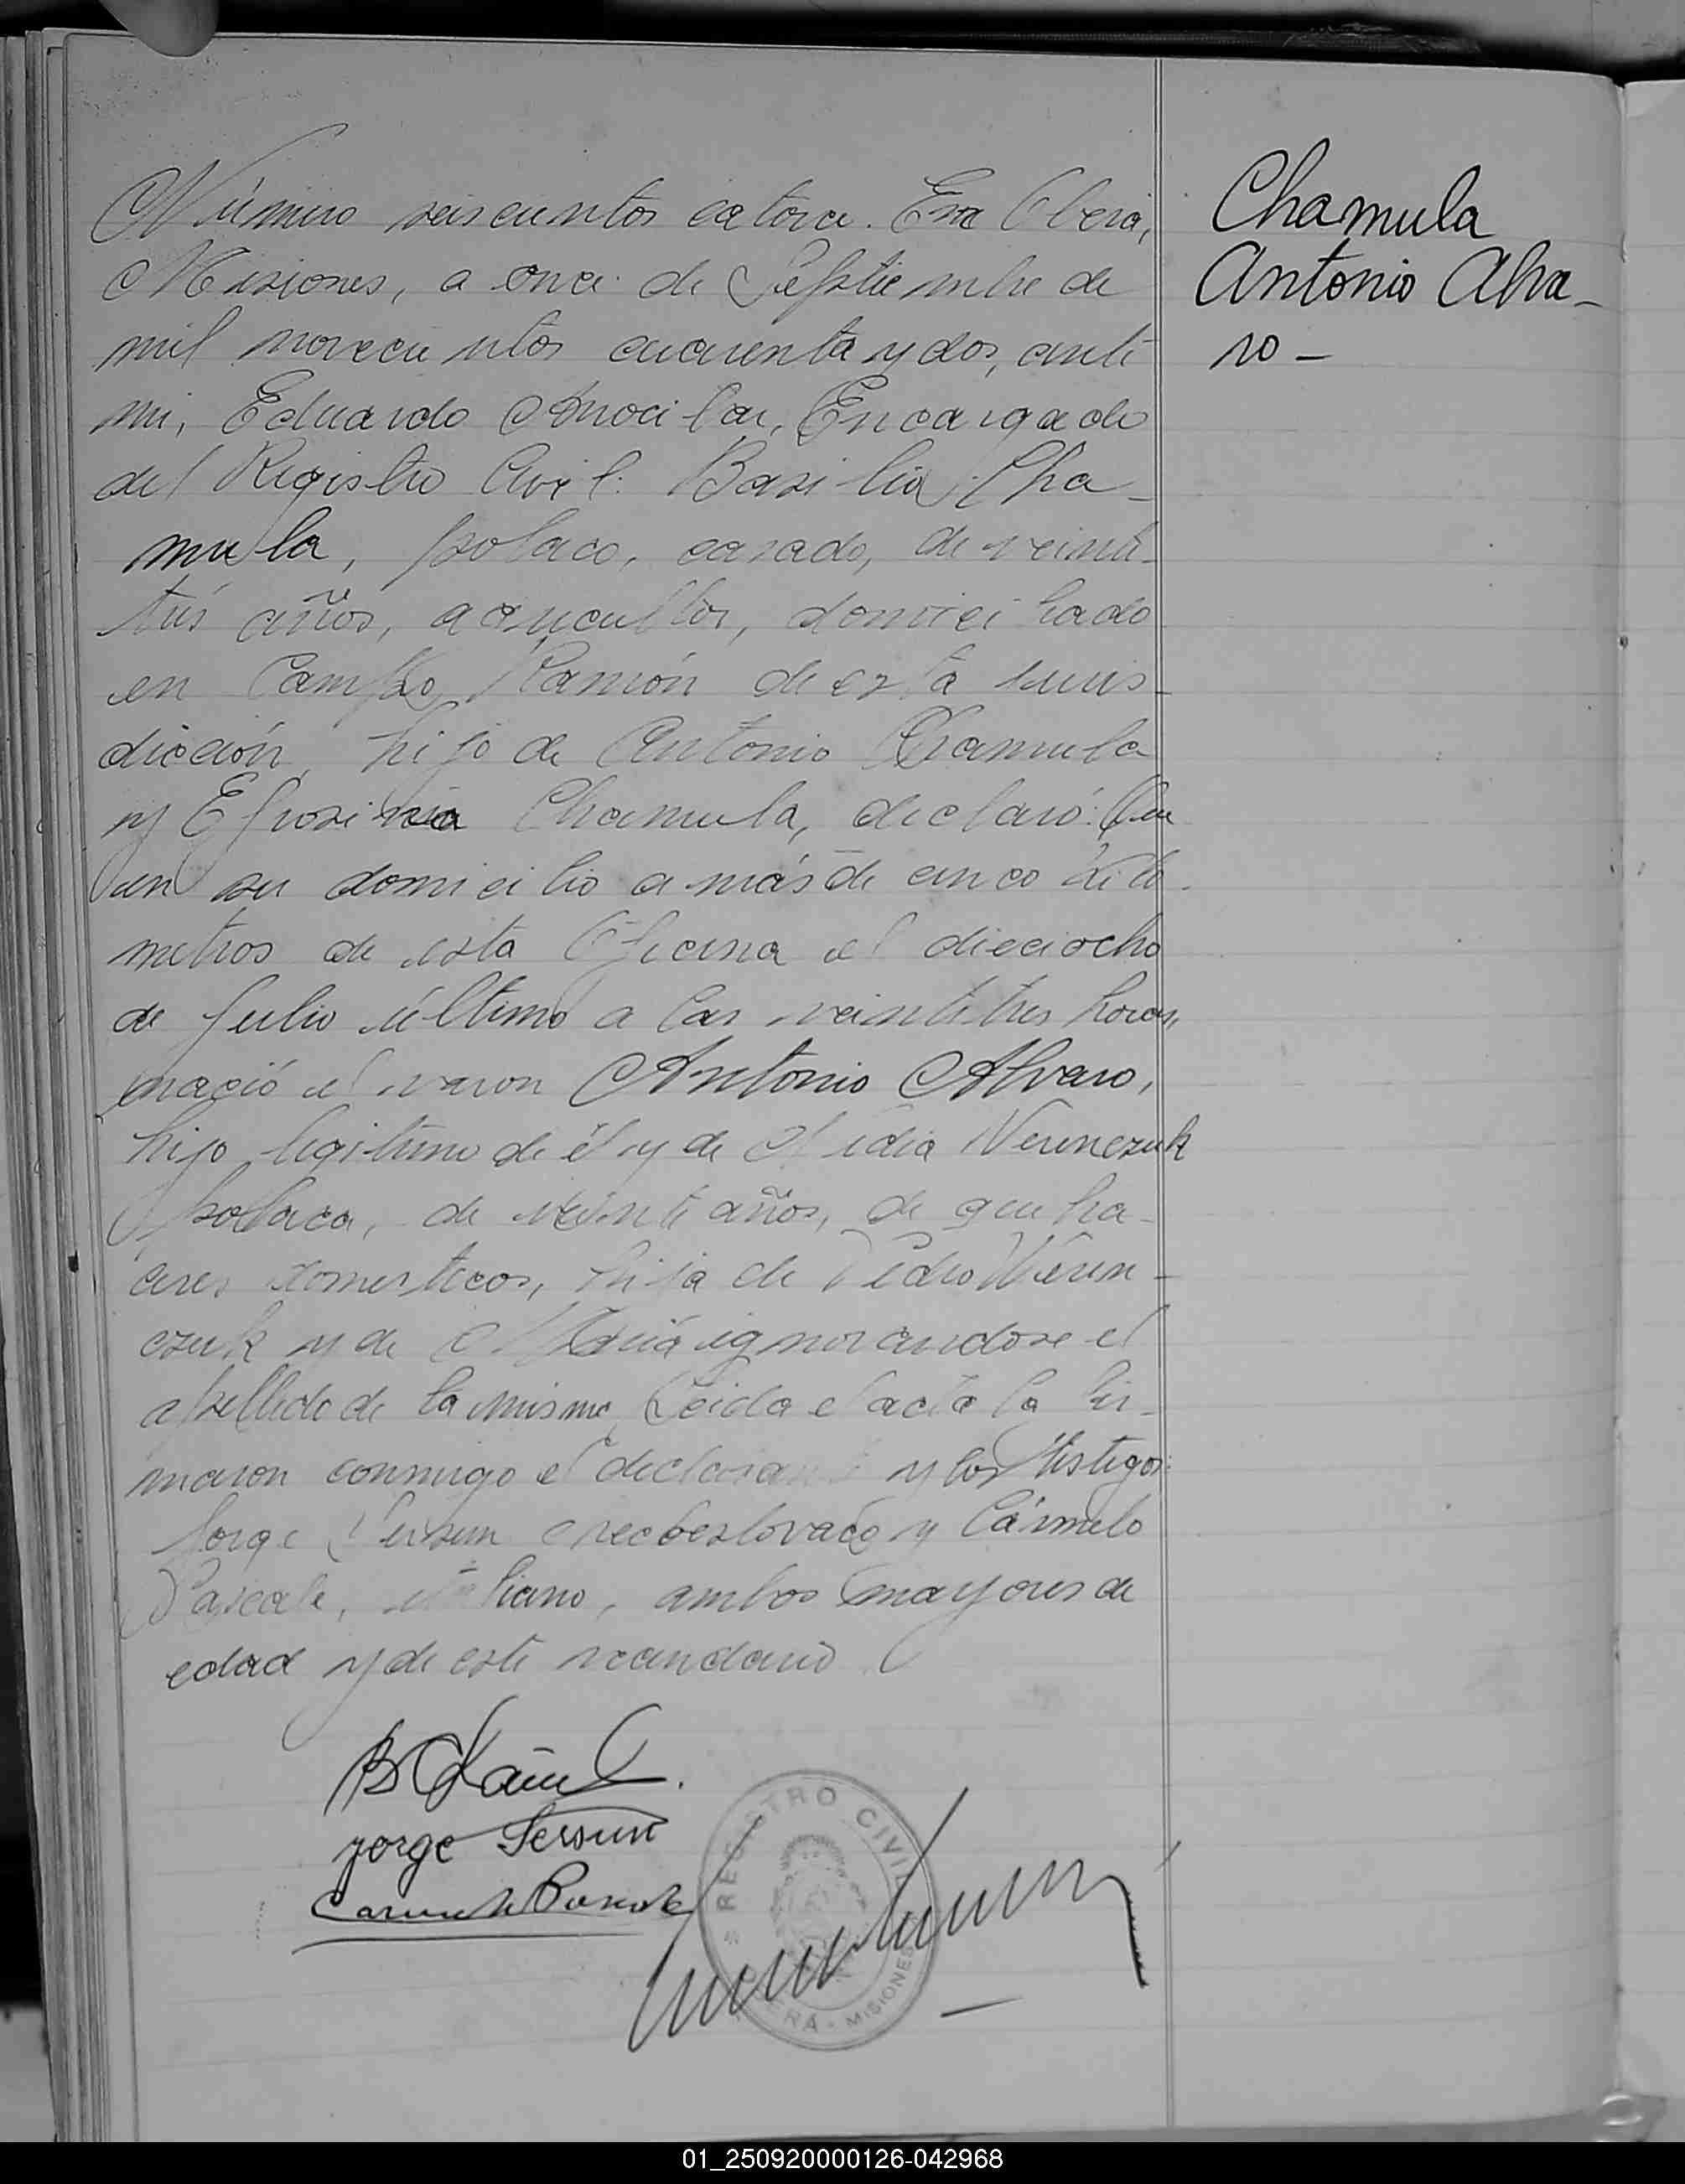 Número seiscientos catorce. En Oberá,
Misiones, a once de Septiembre de
mil novecientos cuarenta y dos, ante
mi, Eduardo Encargado
del Registro Civil: Basilio Cha-
mula, polaco, casado, de veinti-
trés años, agricultor, domiciliado
en Campo Ramón de esta juris-
dicción, hijo de Antonio Chamula
y Efrosina Chamula, declaró: Que
en su domicilio a más de cinco kiló-
metros de esta Oficina el dieciocho
de Julio último a las veintitres horas,
nació el varon Antonio Alvaro,
hijo legitimo de él y de Nidia Werenczuk
polaca, de veinte años, de queha-
ceres domesticos, hija de Pedro Weren-
czuk y de María ignorandose el
apellido de la misma. Leida el acta la fir-
maron conmigo el declarante y los testigos:
Jorge Sersun checoeslovaco y Cármelo
Pascale, italiano, ambos mayores de
edad y de este vecindario
Chamula
Antonio Alva-
ro -
Jorge Sersun
Carmelo Pascale
REGISTRO CIVIL
OBERÁ - MISIONES
01_250920000126-042968